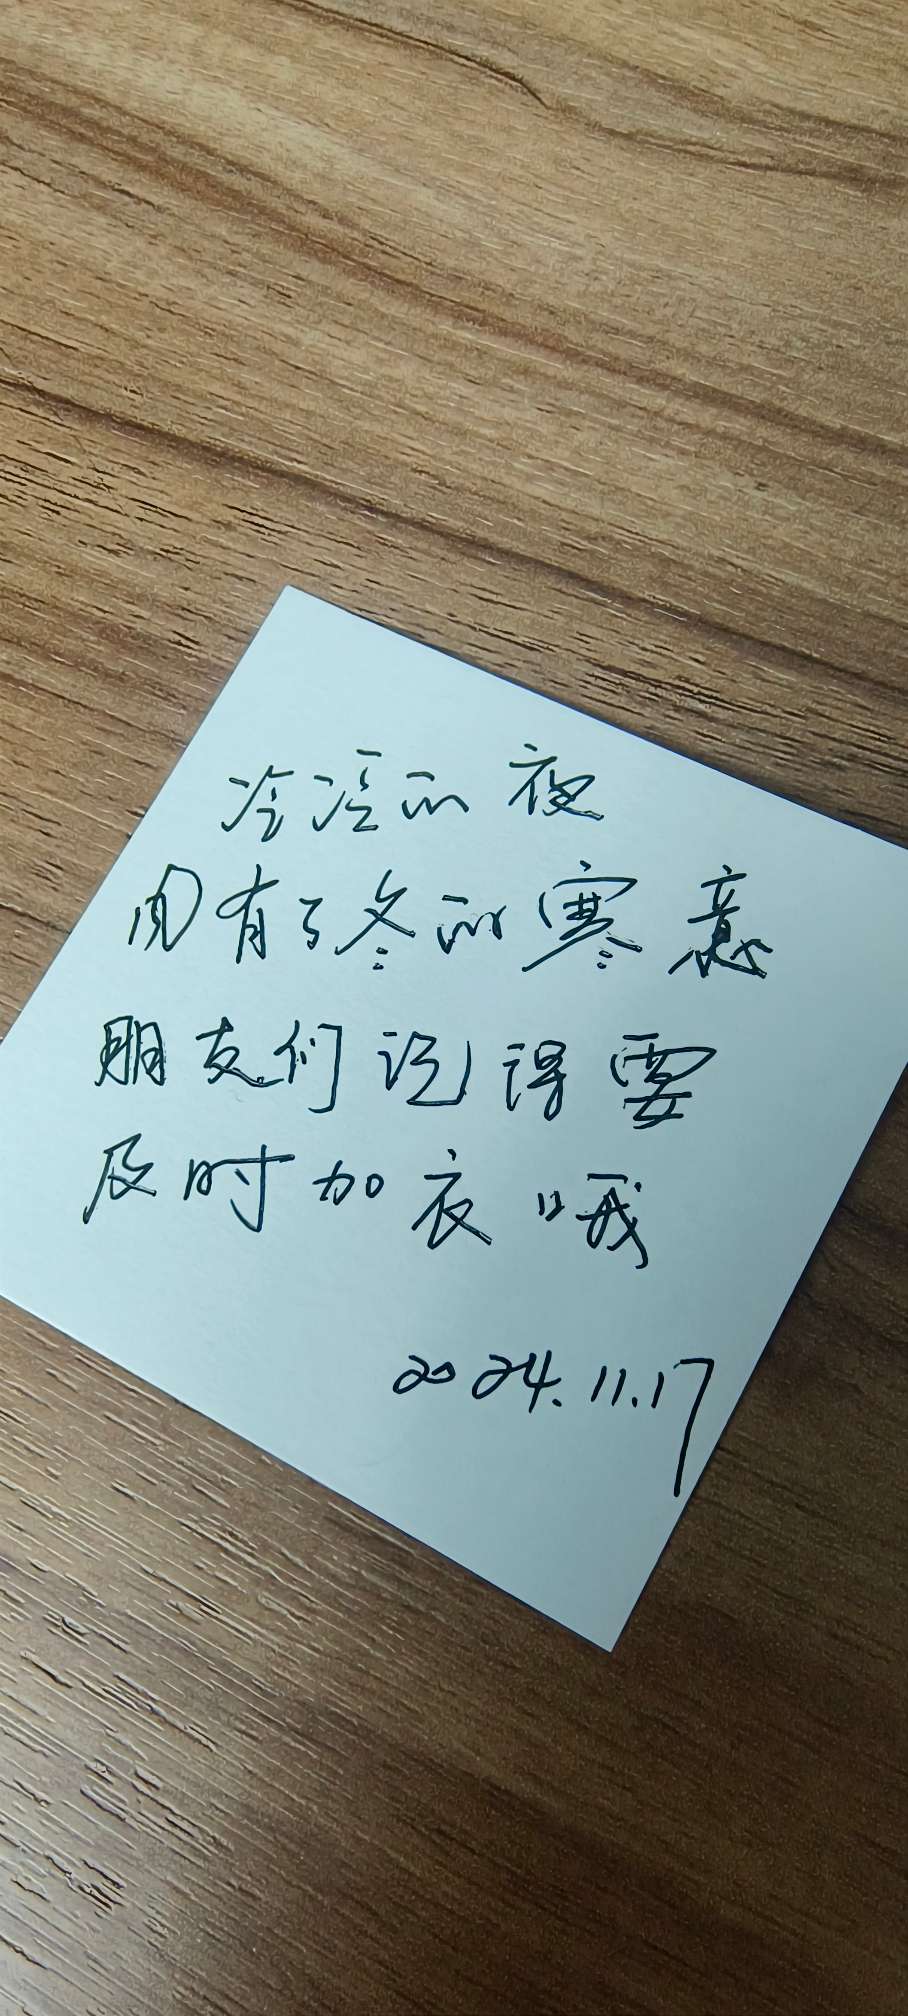 冷冷的夜
内有了冬的寒意
朋友们记得要
及时加衣哦
2024.11.17